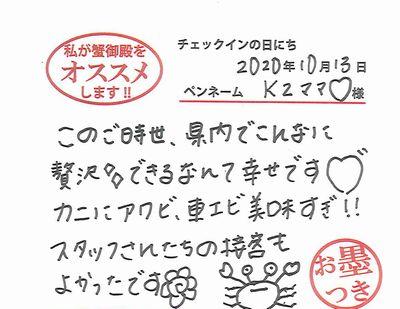 私が蟹御殿を
オススメ
します!!
チェックインの日にち
2020年10月13日
ペンネーム K2ママ♡様
このご時世、県内でこんなに
贅沢できるなんて幸せです♡
カニにアワビ、車エビ美味すぎ!!
スタッフさんたちの接客も
よかったです
お墨
つき